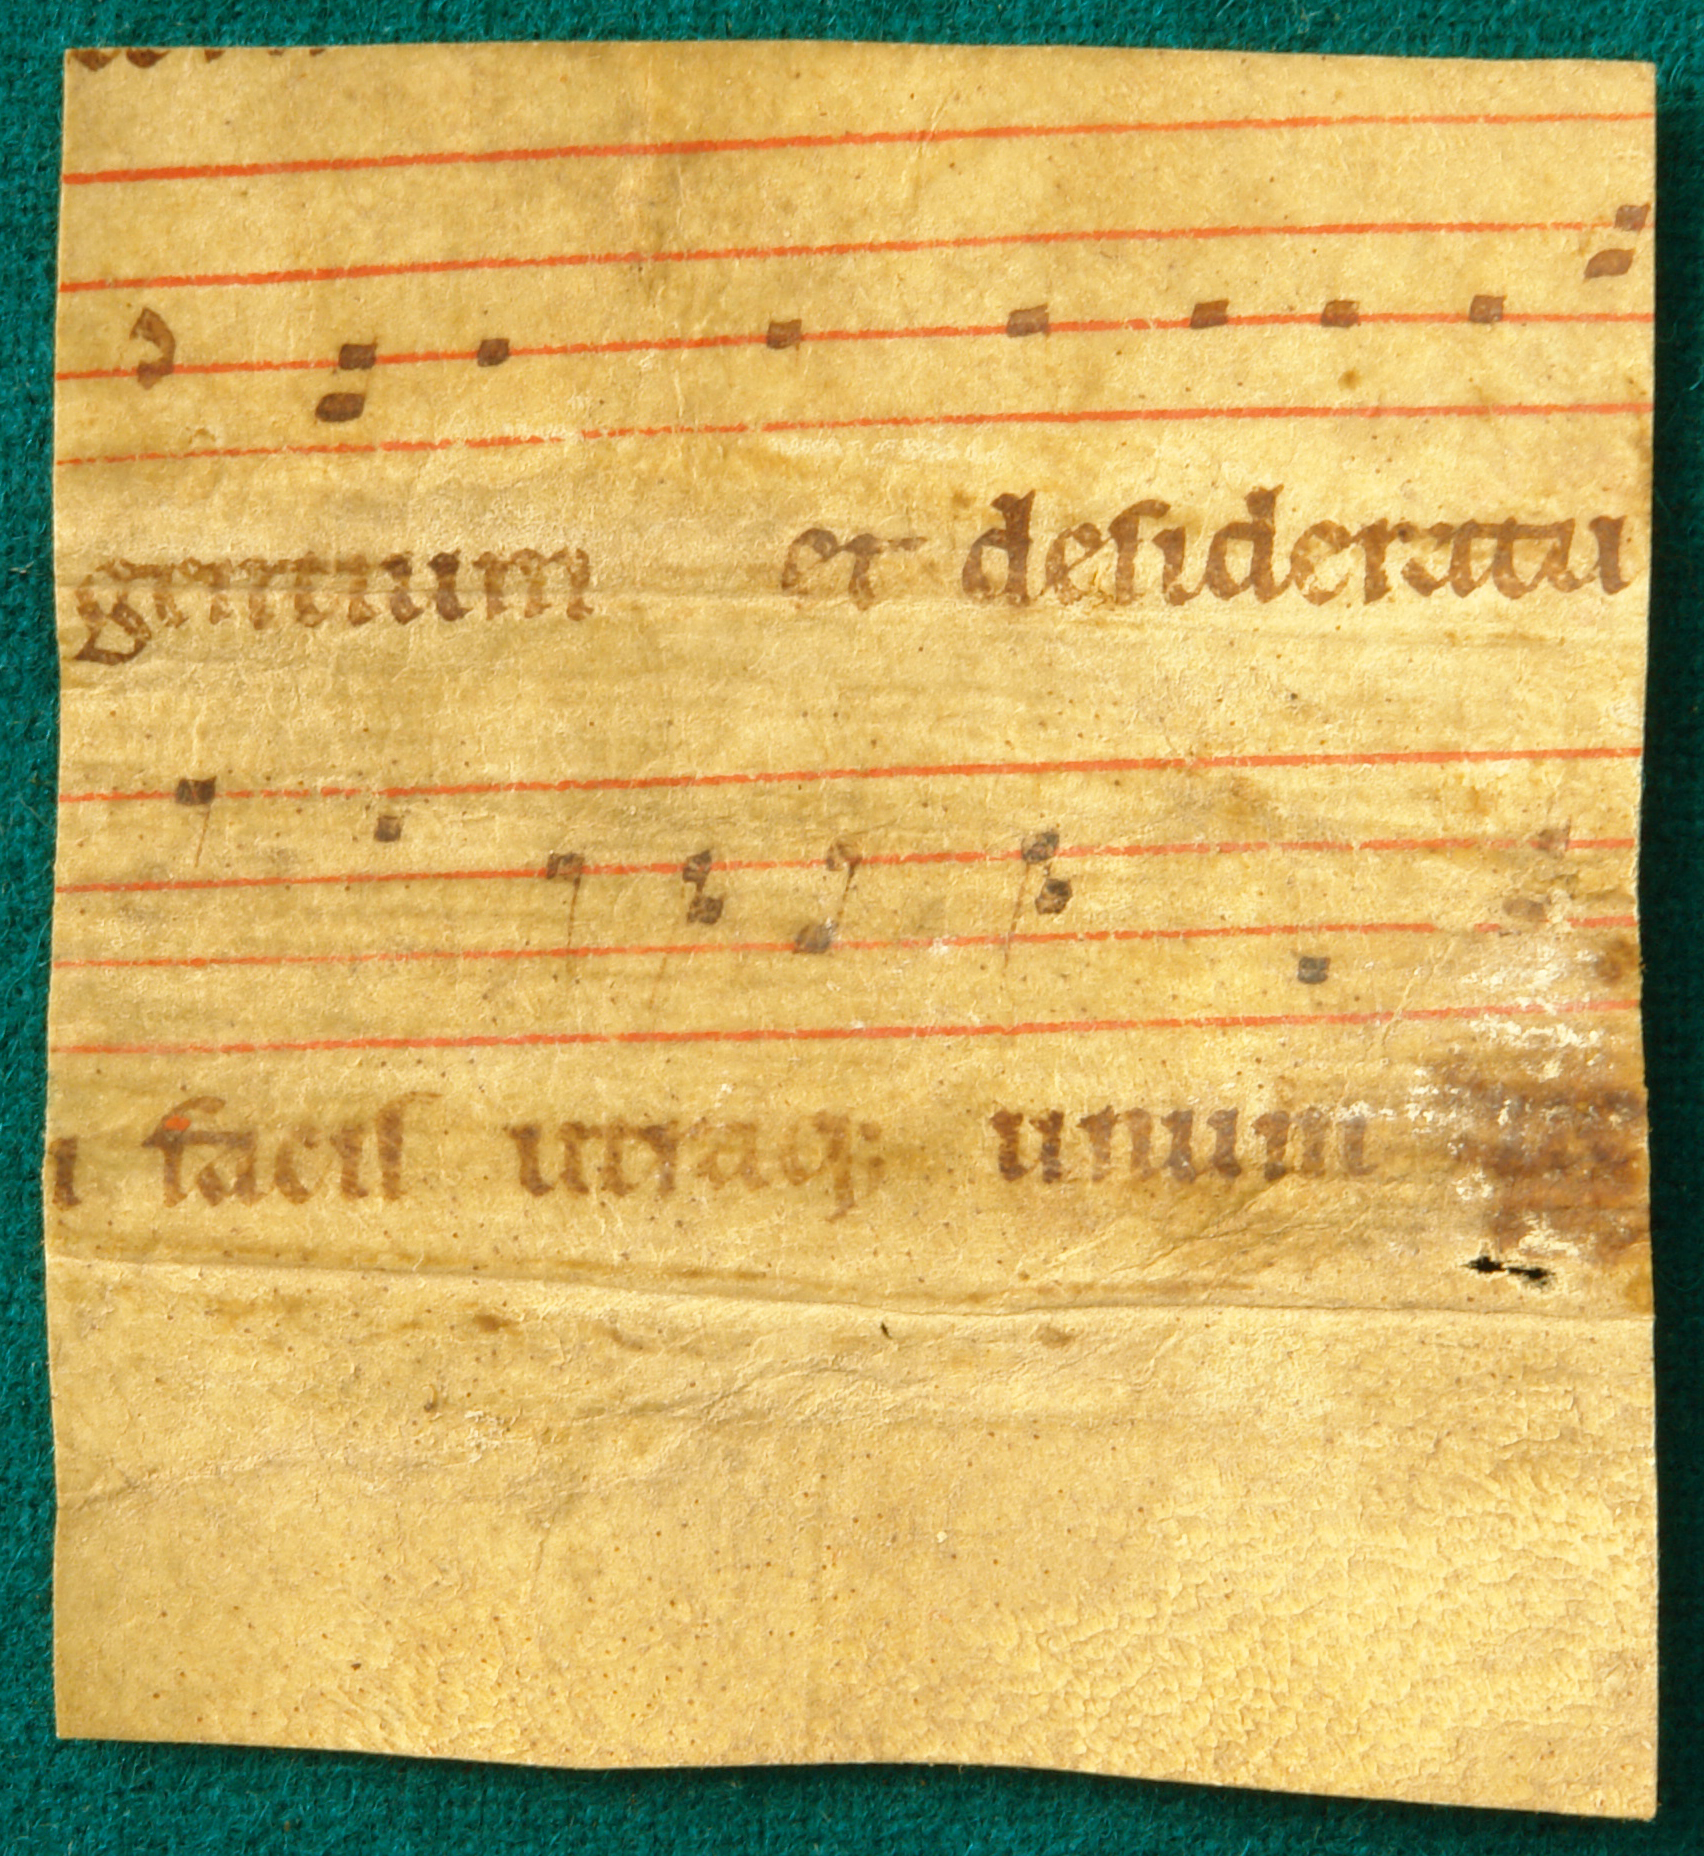 gentium et desideratu
i facis utraq; unum